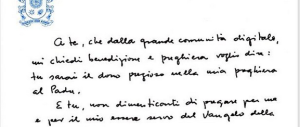 A te, che dalla grande comunità digitale,
mi chiedi benedizione e preghiera voglio dire:
tu sarai il dono prezioso nella mia preghiera
al Padre.
E tu, non dimenticarti di pregare per me
e per il mio essere servo del Vangelo della